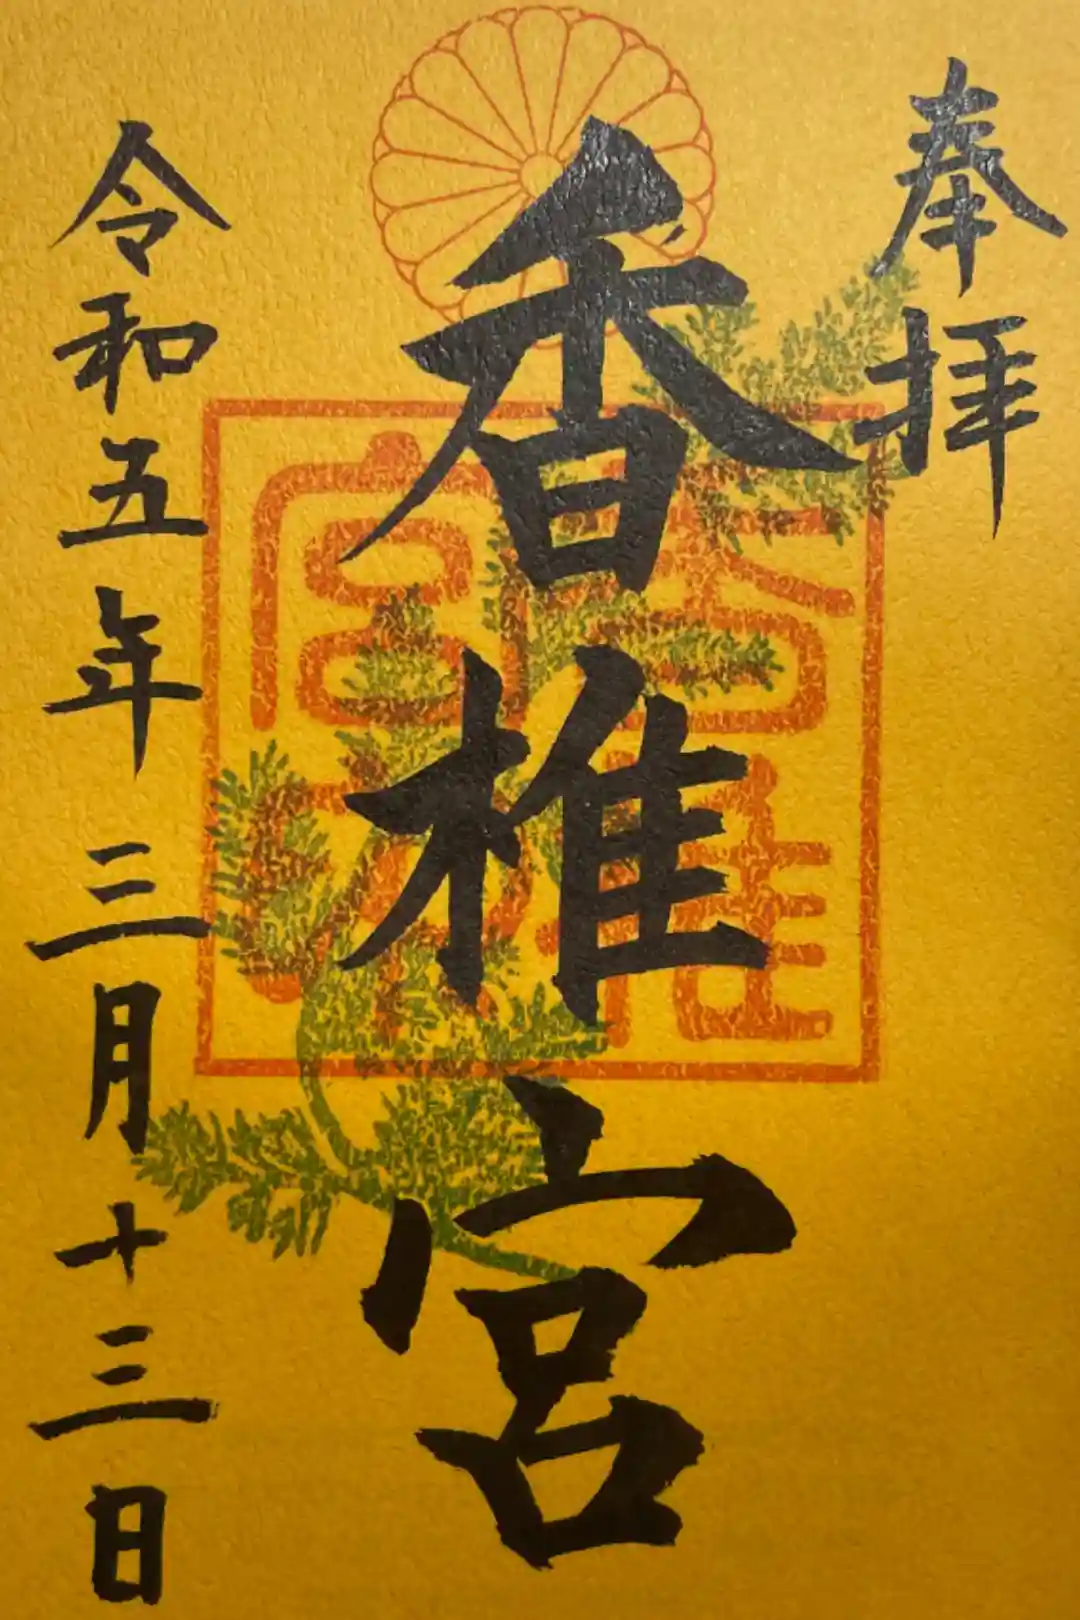 奉拝
香椎宮
令和五年三月十三日
香椎宮